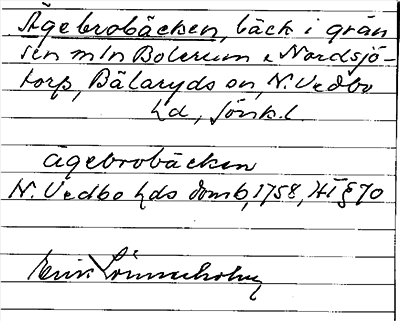 Ägebrobäcken, bäck i grän
sen mln Bolerum o Nordsjö-
torp, Bälaryds sn, N. Vedbo
hd, Jönk. l.
Ägebrobäcken
N. Vedbo hds domb, 1758, HT § 70
Erik Linnerholm